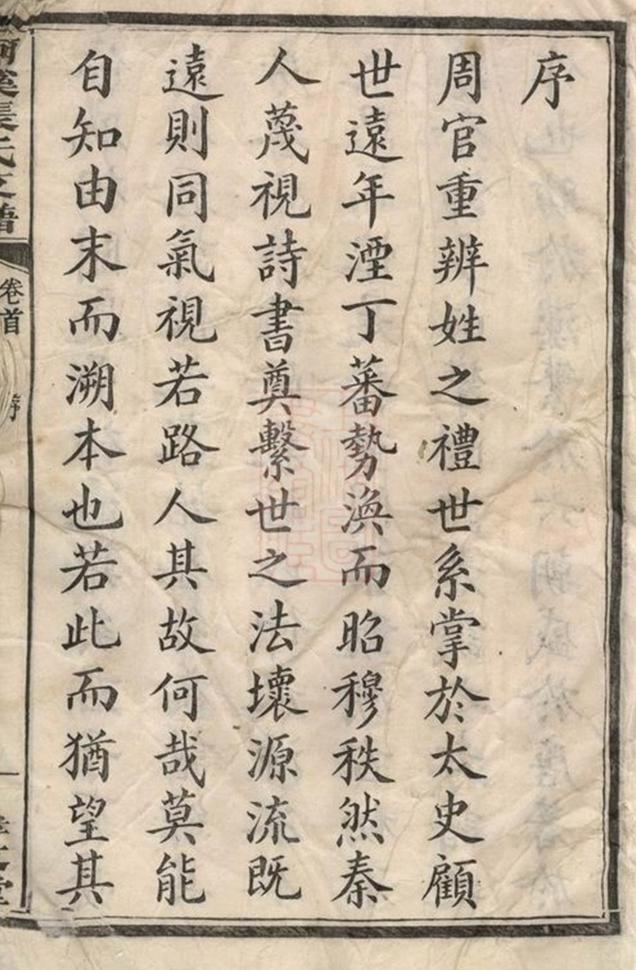 序
周官重辨姓之禮世系掌於太史顧
世遠年湮丁蕃勢渙而昭穆秩然秦
人蔑視詩書奠繫世之法壞源流既
遠則同氣視若路人其故何哉莫能
自知由末而溯本也若此而猶望其
張氏支譜
卷首
序